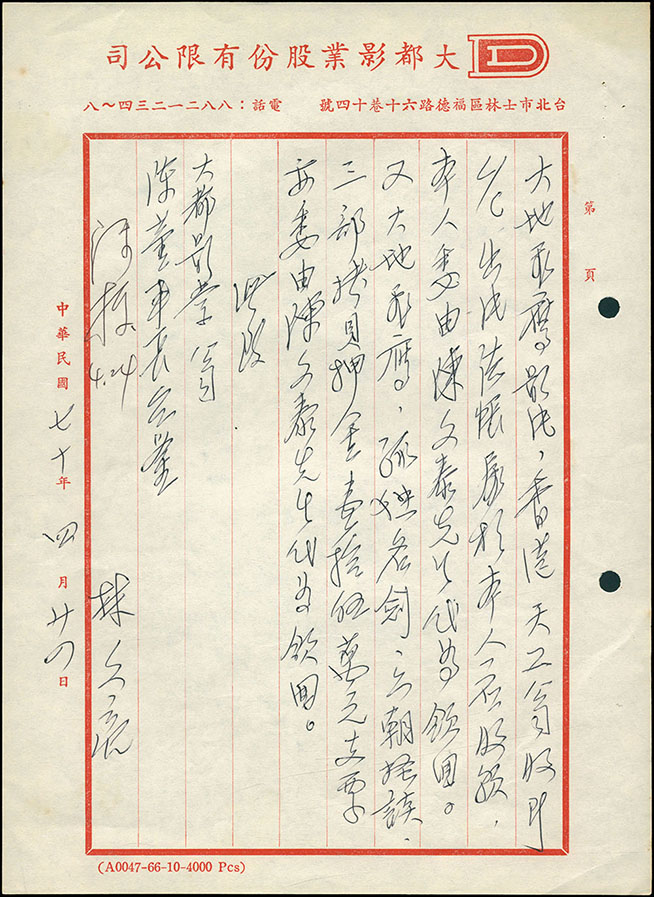 大都影業股份有限公司
台北市士林區福德路六十巷十四號　電話：八八二一二三四～八
第　頁
大地飛鷹影片，香港天工公司收到
4/C 出片法帳屬於本人一石股額，
本人委由陳文泰先生代為領回。
又大地飛鷹，孤獨名劍，六朝怪談，
三部拷貝押金壹拾伍萬元支票
亦委由陳文泰先生代為領回。
此致
大都影業公司
陳董事長台鑒
4.24
林文
中華民國七十年四月廿四日
(A0047-66-10-4000 Pcs)